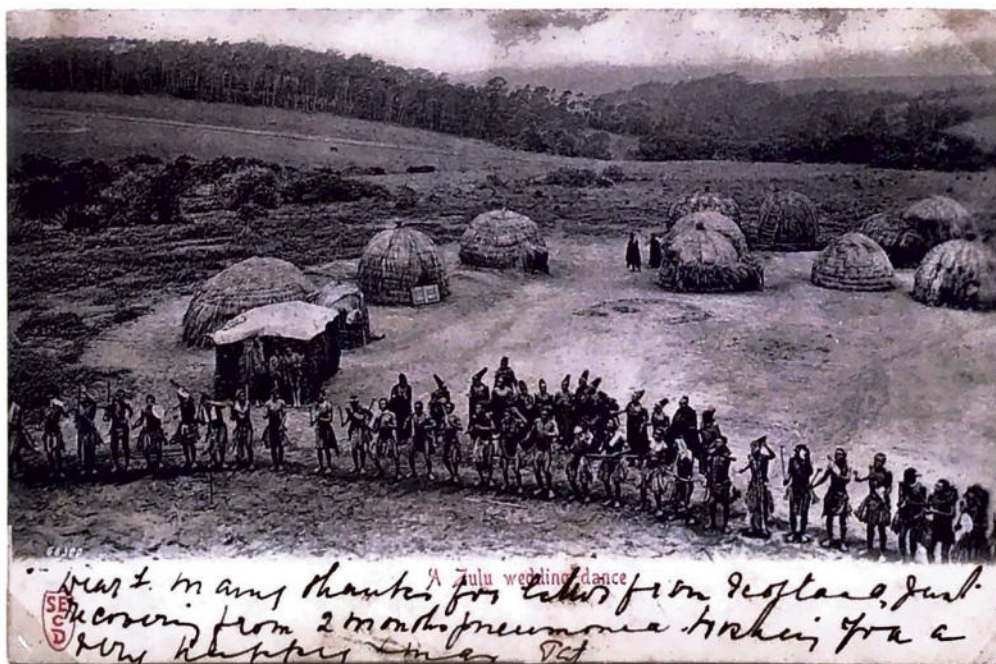 A Zulu wedding dance
many thanks for letters from Scotland, Just
recovering from 2 months pneumonia. Wishing you a
very happy Xmas
SE
CD